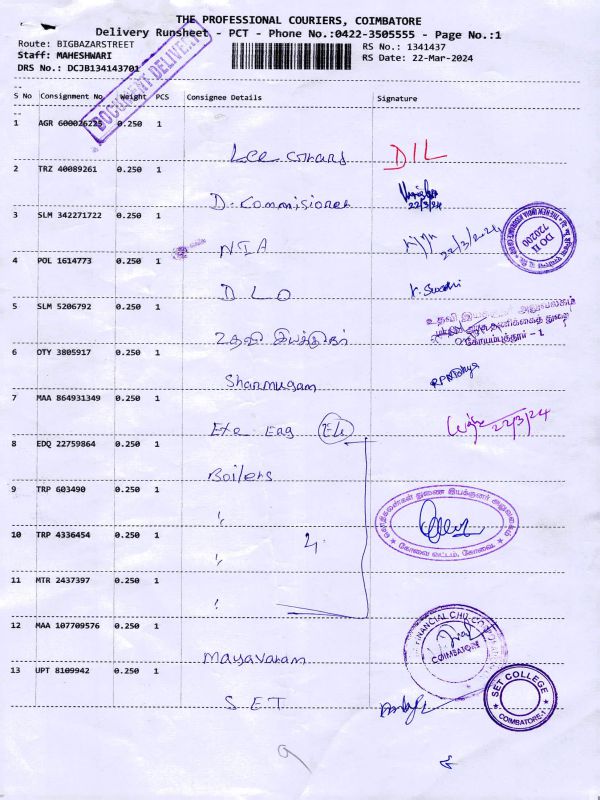 THE PROFESSIONAL COURIERS, COIMBATORE
Delivery Runsheet - PCT - Phone No.:0422-3505555 - Page No.:1
Route: BIGBAZARSTREET
RS No.: 1341437
Staff: MAHESHWARI
RS Date: 22-Mar-2024
DRS No.: DCJB134143701
DOCUMENT DELIVERY
S No Consignment No. Weight PCS Consignee Details Signature
1 AGR 600026225 0.250 1
DIL
2 TRZ 40089261 0.250 1
D. Commisioner 22/3/24
3 SLM 342271722 0.250 1
NIA 22/3/2024
4 POL 1614773 0.250 1
DLO
5 SLM 5206792 0.250 1
உதவி இயக்குநர்
கோயம்புத்தூர் - 1
6 OTY 3805917 0.250 1
Shanmugam
7 MAA 864931349 0.250 1
Exe Eng Ele 22/3/24
8 EDQ 22759864 0.250 1
Boilers
9 TRP 603490 0.250 1
"
10 TRP 4336454 0.250 1
" 4
11 MTR 2437397 0.250 1
"
12 MAA 107709576 0.250 1
Mayavaram
COIMBATORE
13 UPT 8109942 0.250 1
SET
SET COLLEGE
COIMBATORE-1
9